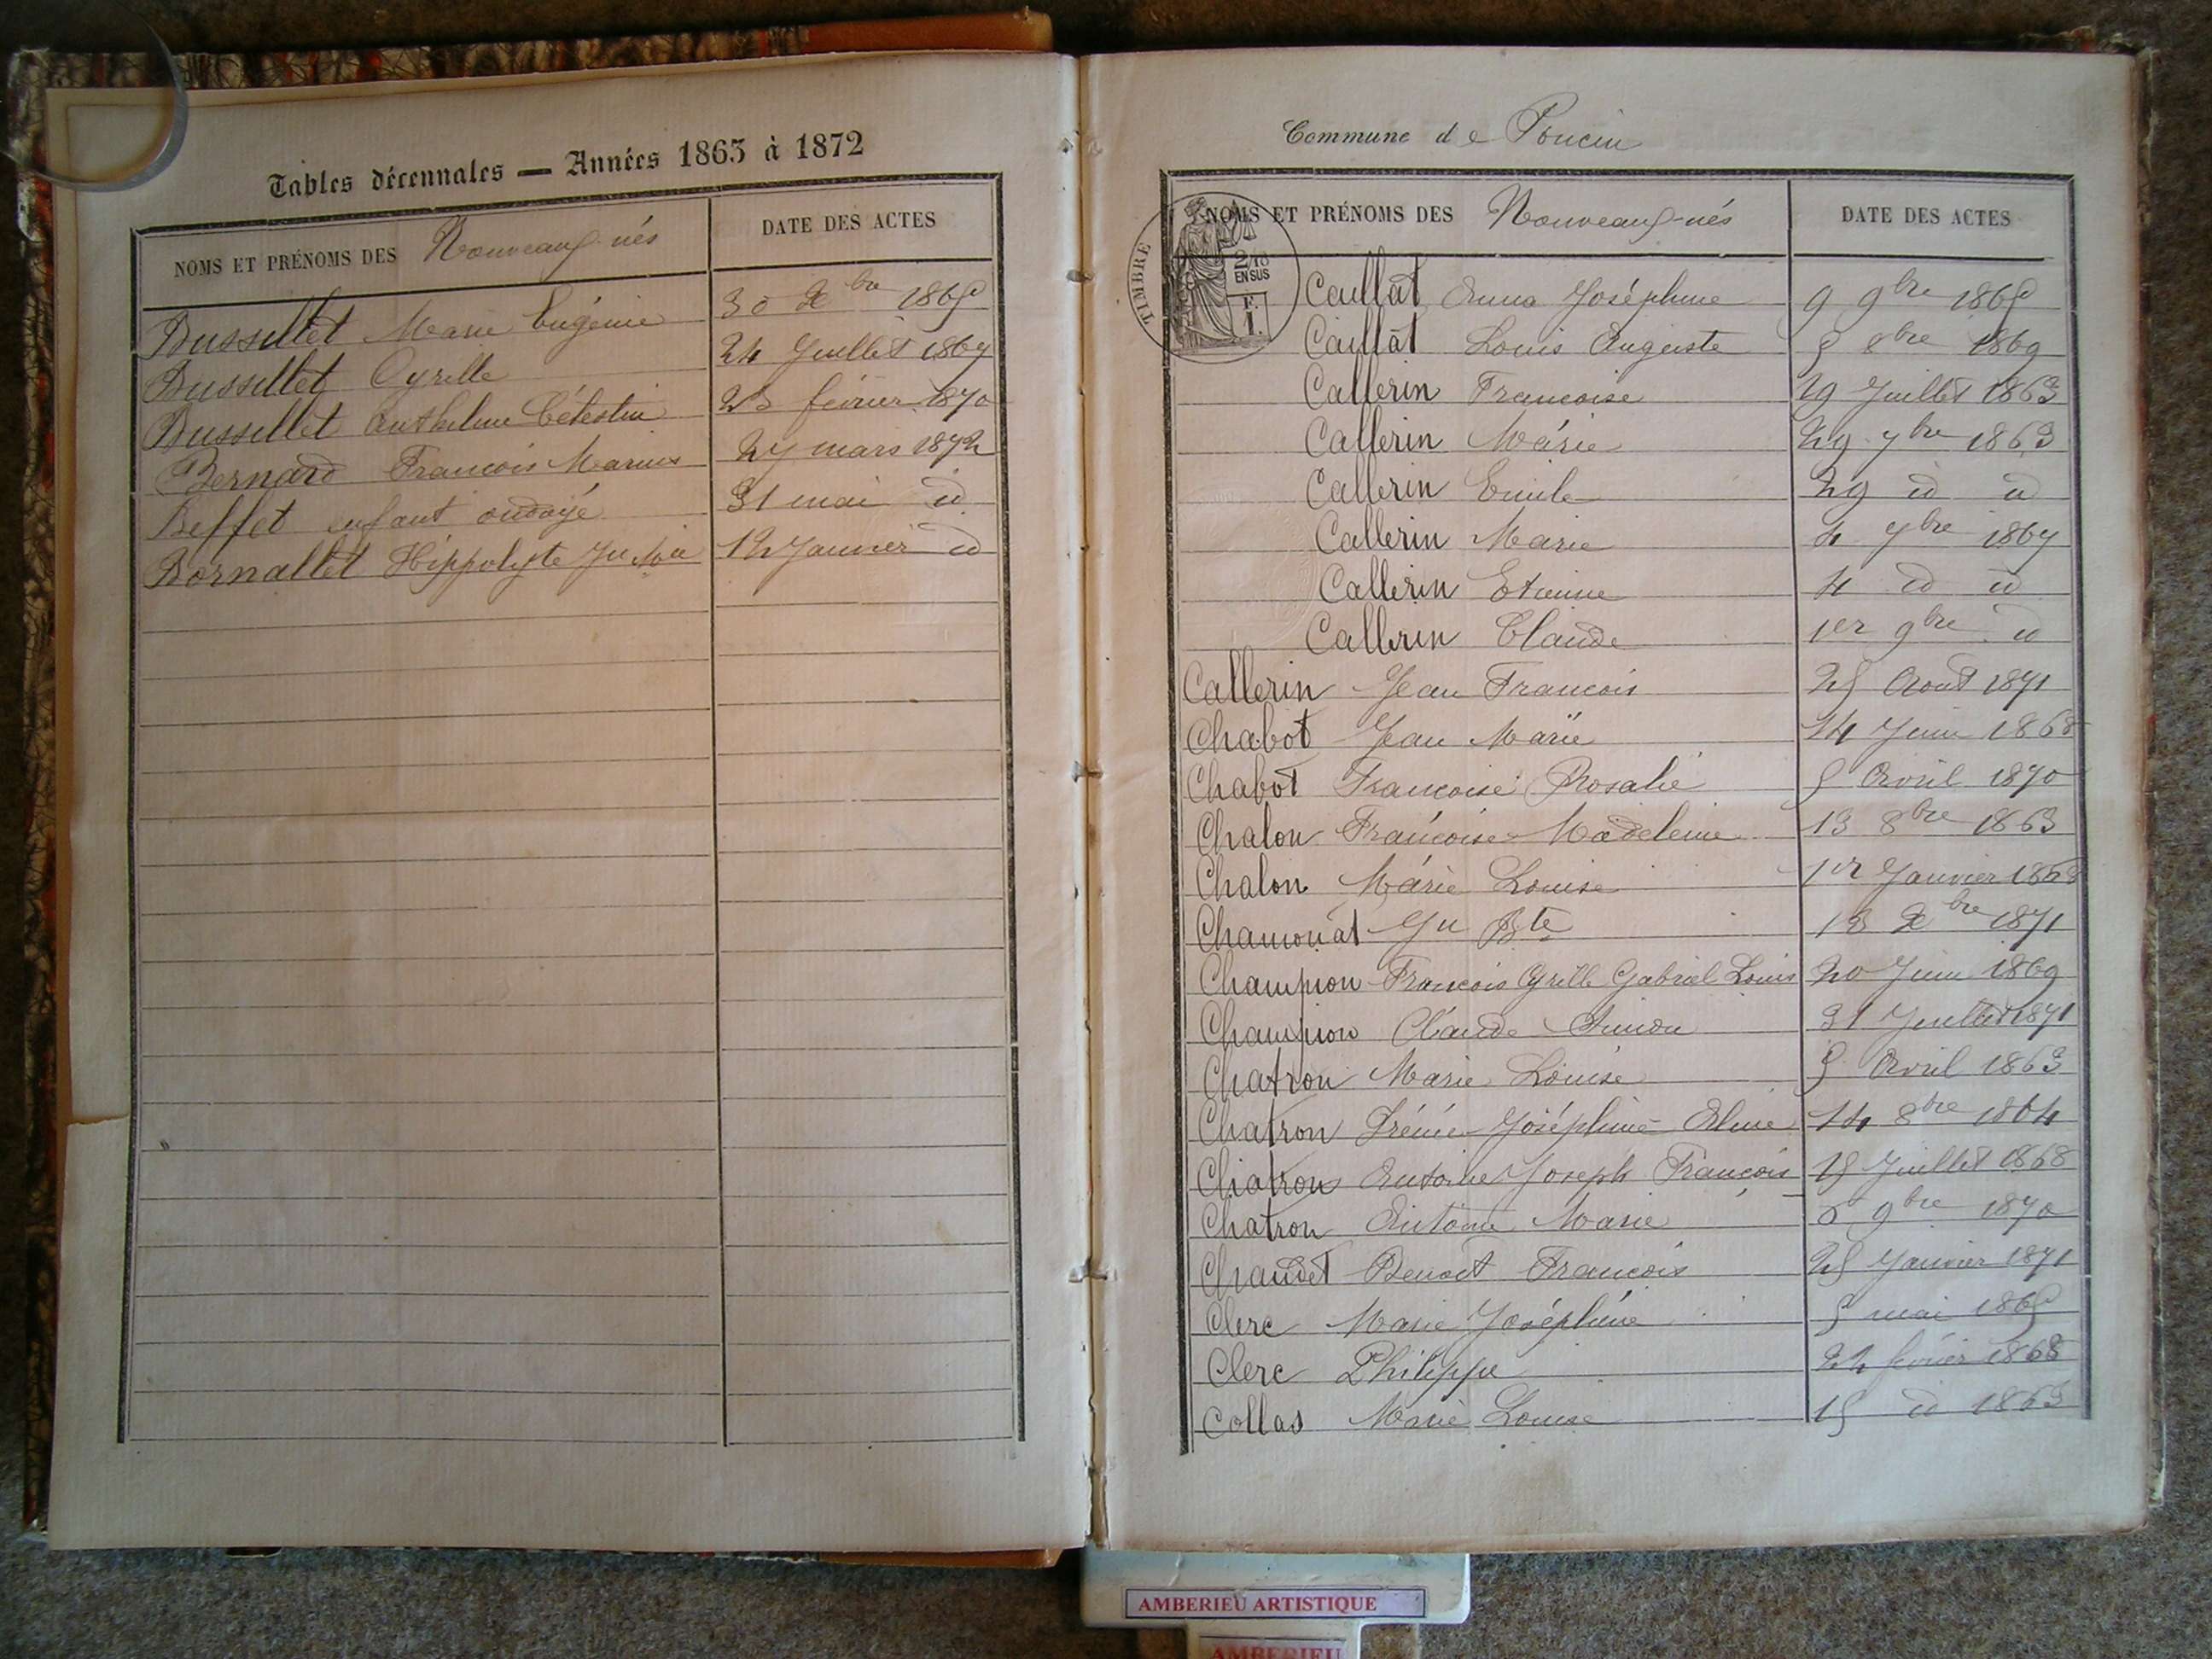 Tables décennales — Années 1863 à 1872
NOMS ET PRÉNOMS DES Nouveaux-nés DATE DES ACTES
Bussillet Marie Eugénie 30 Xbre 1865
Bussillet Cyrille 24 Juillet 1867
Bussillet Anthelme Célestin 23 février 1870
Bernard François Marius 27 mars 1872
Beffet enfant ondoyé 31 mai id
Bornallet Hippolyte Jn Mie 12 Janvier id
Commune de Poncin
NOMS ET PRÉNOMS DES Nouveaux-nés DATE DES ACTES
TIMBRE
2/10
EN SUS
F.
1.
Caillat Anna Joséphine 9 9bre 1865
Caillat Louis Auguste 5 8bre 1869
Callerin Françoise 29 Juillet 1863
Callerin Marie 29 7bre 1863
Callerin Emile 29 id id
Callerin Marie 4 7bre 1867
Callerin Etienne 4 id id
Callerin Claude 1er 9bre id
Callerin Jean François 25 Août 1871
Chabot Jean Marie 14 Juin 1868
Chabot Françoise Rosalie 5 Avril 1870
Chalon Françoise Madeleine 13 8bre 1863
Chalon Marie Louise 1er Janvier 1868
Chamonat Jn Bte 13 Xbre 1871
Champion François Cyrille Gabriel Louis 20 Juin 1869
Champion Claude Simon 31 Juillet 1871
Chatron Marie Louise 5 Avril 1863
Chatron Irénée Joséphine 14 8bre 1864
Chatron Antoine Joseph François 15 Juillet 1868
Chatron Antoine Marie 9bre 1870
Chaudet Benoit François 25 Janvier 1871
Clerc Marie Joséphine 5 mai 1865
Clerc Philippe 24 février 1868
Collas Marie Louise 15 id 1863
AMBERIEU ARTISTIQUE
AMBERIEU